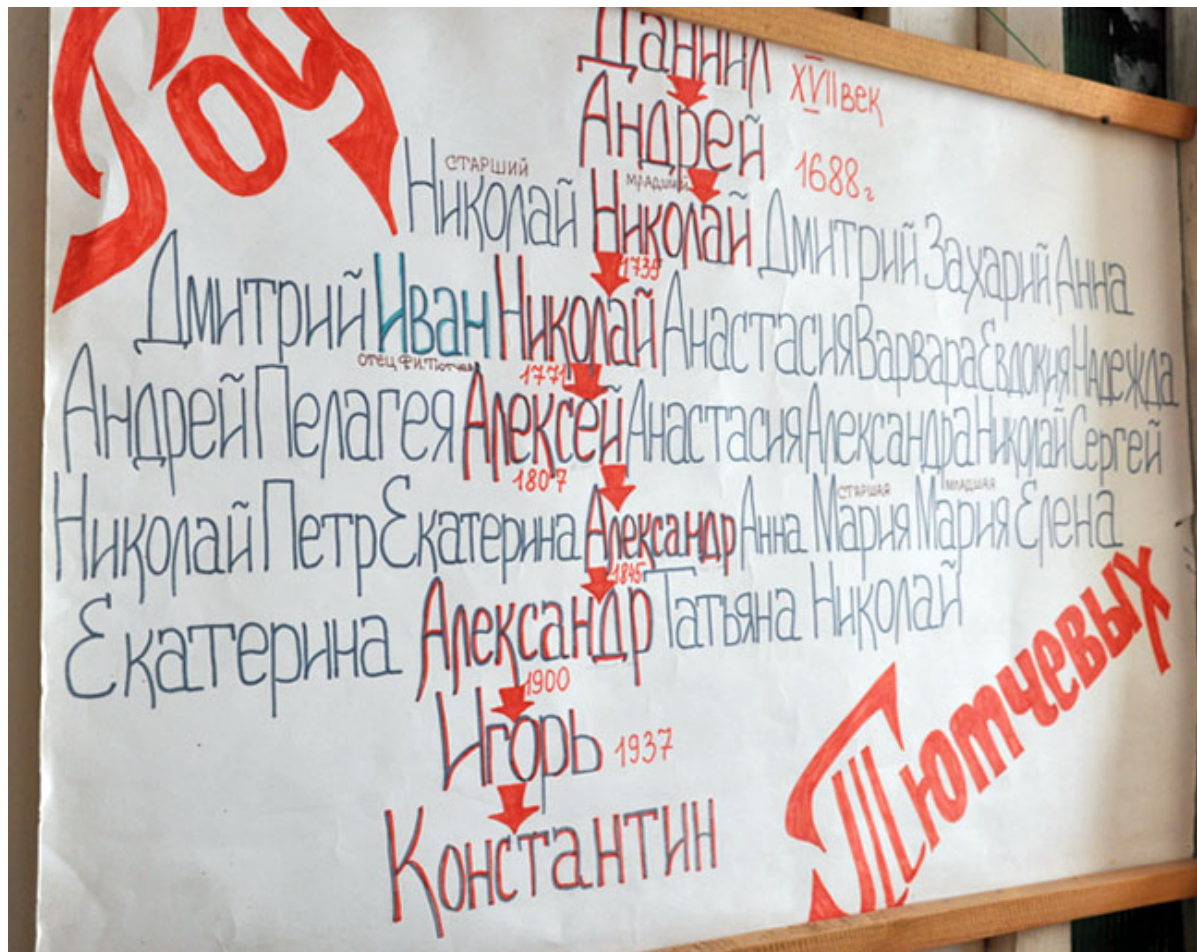 Род
Даниил XVII век
Андрей 1688 г
СТАРШИЙ МЛАДШИЙ
Николай Николай Дмитрий Захарий Анна
1739
Дмитрий Иван Николай Анастасия Варвара Евдокия Надежда
отец Ф.И. Тютчева 1771
Андрей Пелагея Алексей Анастасия Александра Николай Сергей
1807 СТАРШАЯ МЛАДШАЯ
Николай Петр Екатерина Александр Анна Мария Мария Елена
1845
Екатерина Александр Татьяна Николай
1900
Игорь 1937
Константин
Тютчевых